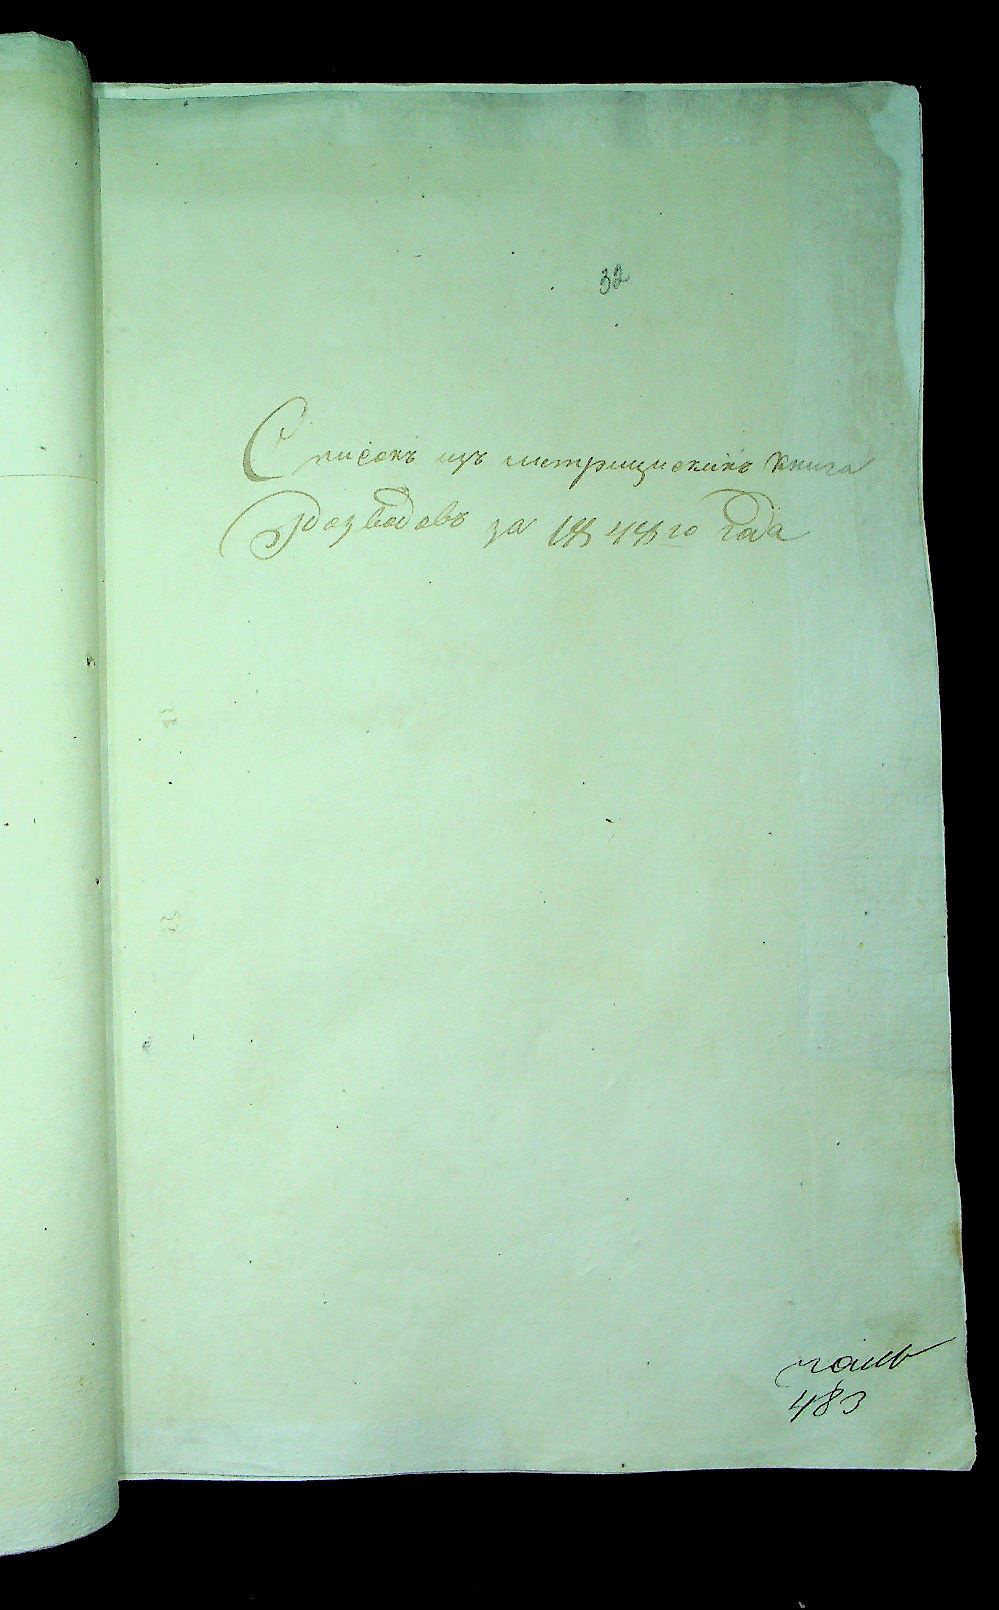 32
Списокъ изъ метрицискихъ книга
Розводовъ за 1848го года
483